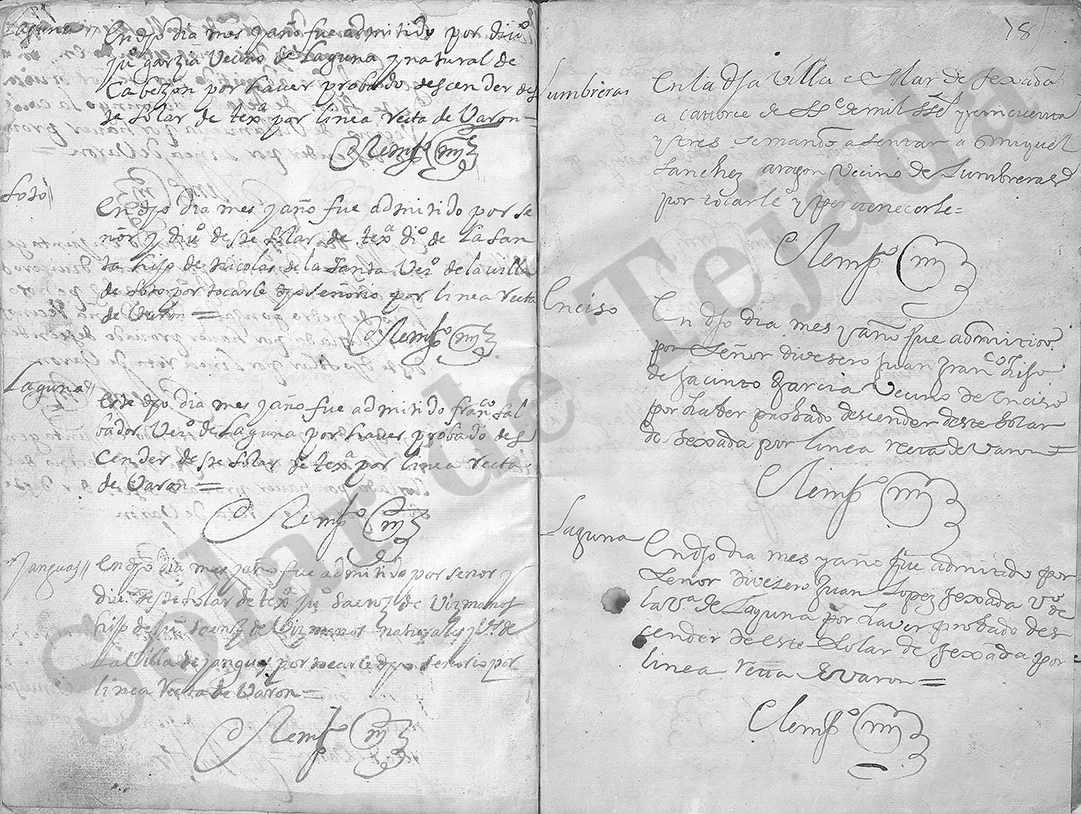 Laguna
En dho dia mes y año fue admitido por diuº
juº garzia Vecino de Laguna y natural de
Cabezon por hauer probado descender des
te solar de texª por linea recta de Varon
Soto
En dho dia mes y año fue admitido por se
ñor y diuº deste solar de texª dº de la San
ta hijo de nicolas de la Santa Vezº de la villa
de Soto por tocarle dho señorio por linea recta
de Varon =
Laguna
En dho dia mes y año fue admitido franco Sal
bador Vezº de Laguna por hauer probado des
cender deste Solar de texª por linea recta
de Varon =
Janguas
En dho dia mes y año fue admitido por señor y
diuº deste Solar de texª juº Saenz de Vizmanos
hijo de Saenz de Vizmanos naturales de
La Villa de janguas por tocarle dho señorio por
linea recta de Varon =
78
Lumbreras
En la dha Villa e solar de texada
a catorce de de mil y cincuenta
y tres se mando asentar a miguel
Sanchez aragon Vecino de Lumbreras
por tocarle y pertenecerle =
Enciso
En dho dia mes y año fue admitido
por Señor divesero Juan Franco hijo
de Jacinto Garcia Vecino de Enciso
por haber probado descender deste Solar
de texada por linea recta de varon =
Laguna
En dho dia mes y año fue admitido por
Señor divesero Juan Lopez texada vº de
la vª de Laguna por haver probado des
cender de este Solar de texada por
linea recta de Varon =
Solar de Tejada